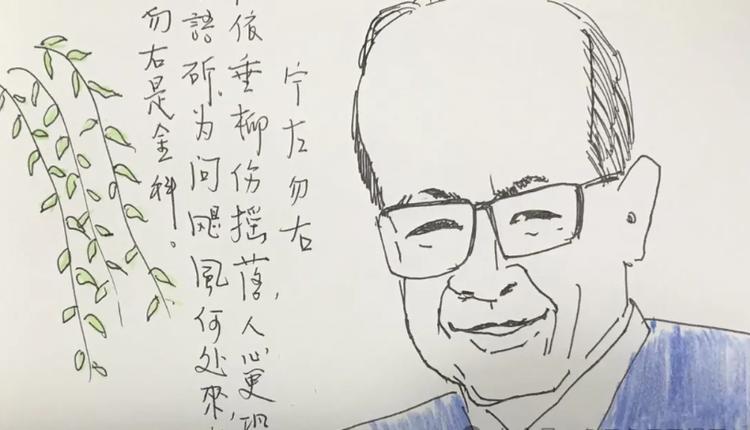 宁左勿右
依垂柳伤摇落,人心更
語斫为问飓風何处來
勿右是金科。